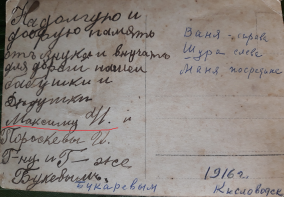 На долгую и
добрую память
отъ внуки и внучатъ
для дорогой нашей
бабушки и
дедушки
Максиму И. и
Пороскевы И.
Г-ну и Г-же
Букевымъ.
Букаревым
Ваня справа
Шура слева
Маня посредине
1916 г.
Кисловодск